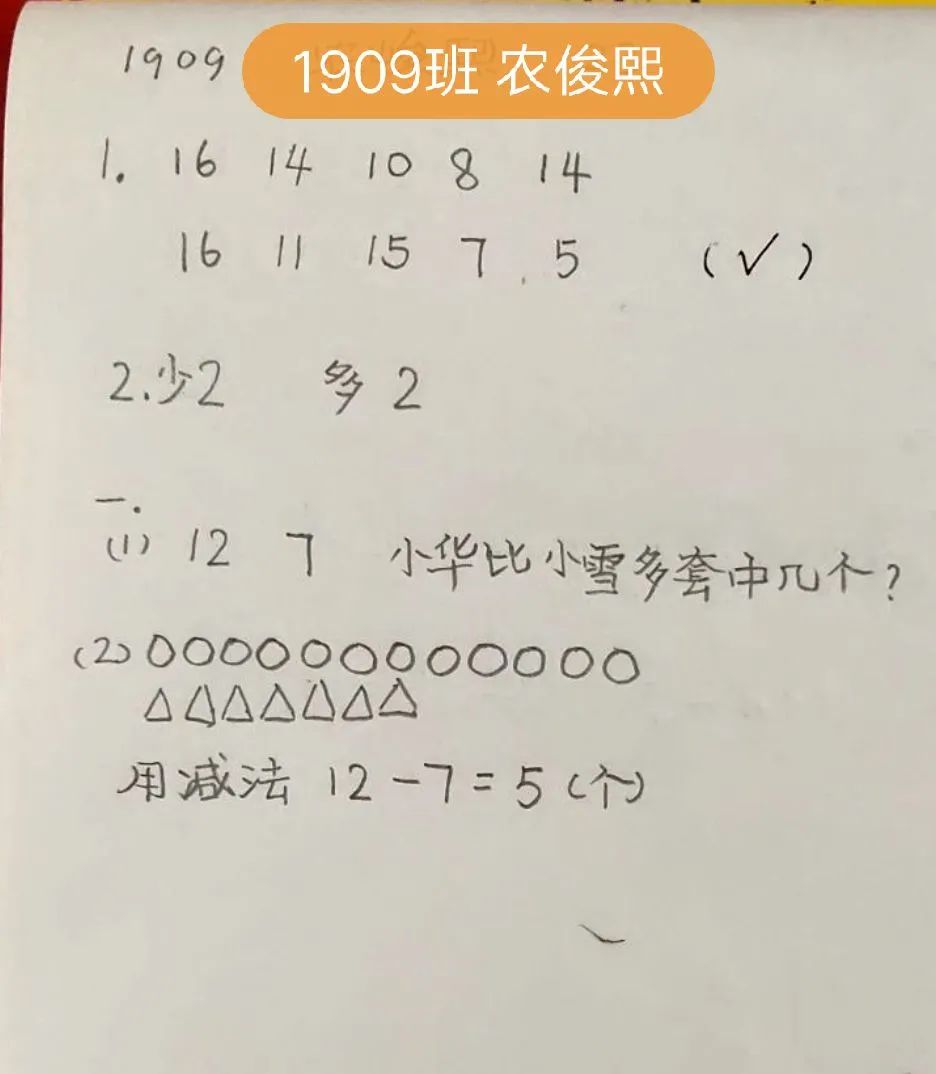 1909
1909班 农俊熙
1. 16 14 10 8 14
16 11 15 7 5 (√)
2.少2 多2
一.
(1) 12 7 小华比小雪多套中几个?
(2)○○○○○○○○○○○○○
△△△△△△△
用减法 12-7=5(个)